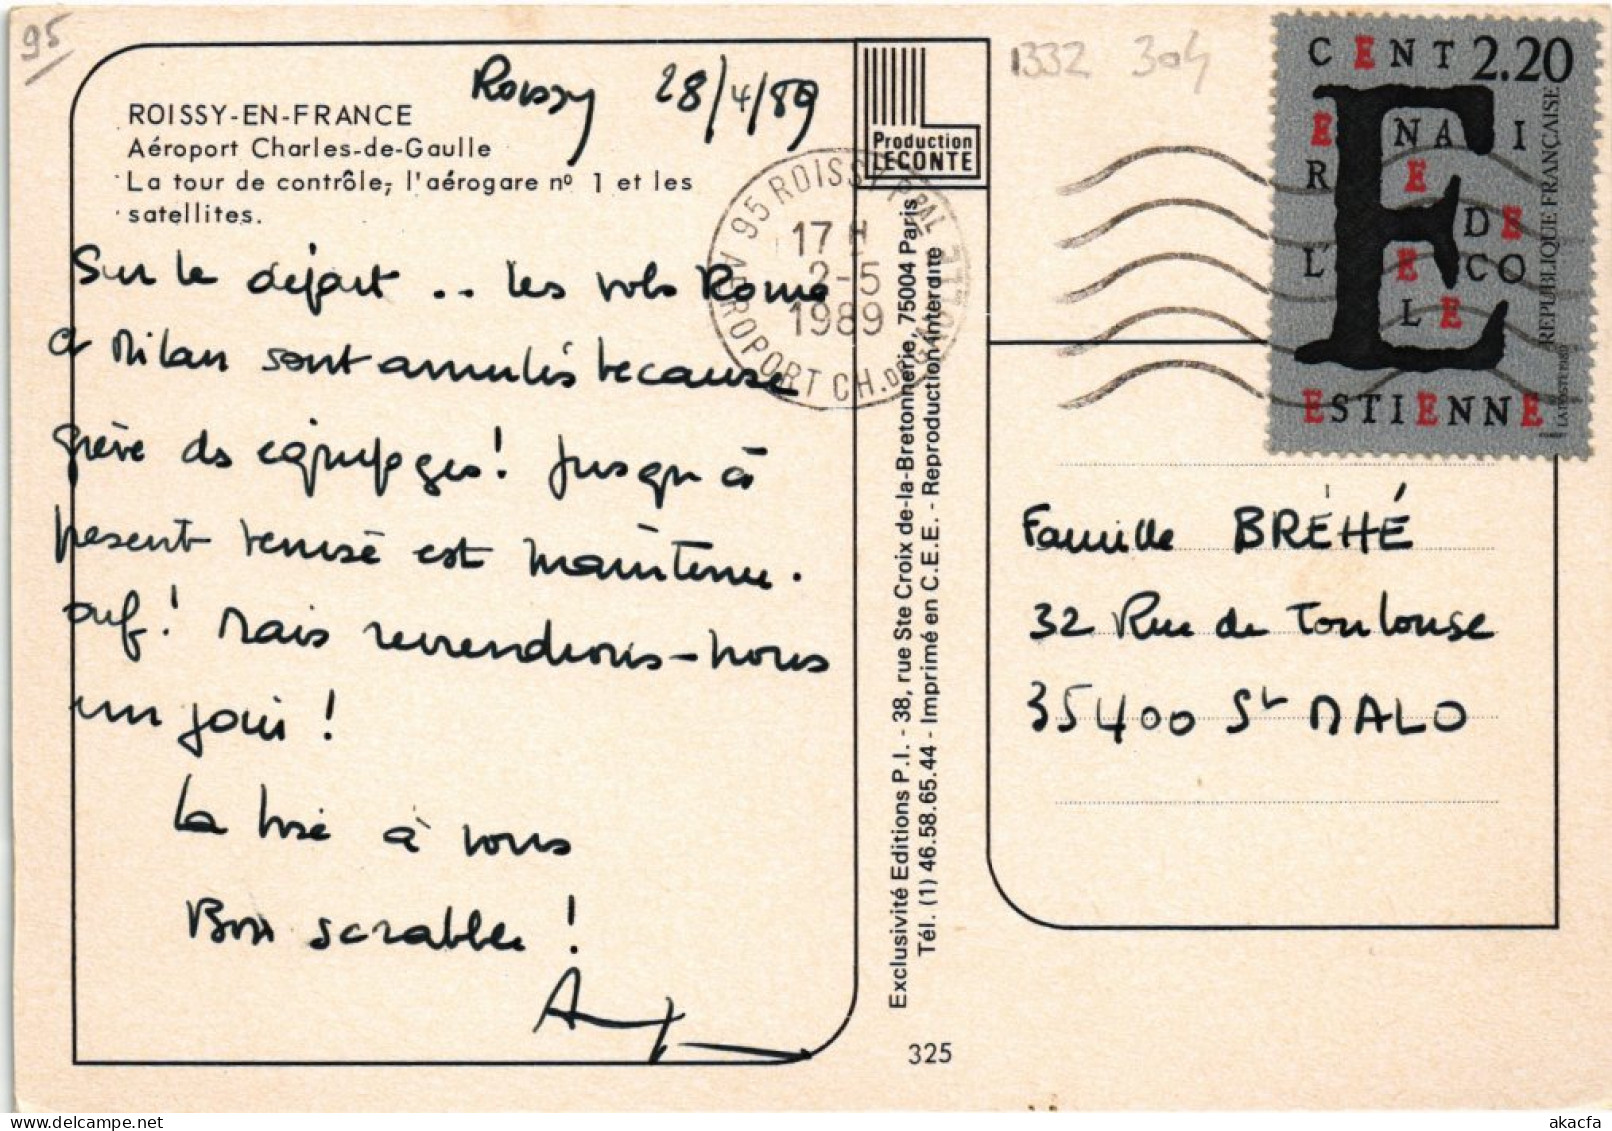 95
Roissy 28/4/89
1332 304
ROISSY-EN-FRANCE
Aéroport Charles-de-Gaulle
La tour de contrôle, l'aérogare nº 1 et les
satellites.
Production
LECONTE
95 ROISSY PPAL
AEROPORT CH. DE G
17 H
2-5
1989
CENT 2.20
ENAI
RE
DE
L'ECO
LE
ESTIENNE
REPUBLIQUE FRANÇAISE
LA POSTE 1989
Sur le départ .. les vols Rome
à Milan sont annulés because
grève des équipages! Jusqu'à
présent Venise est maintenu.
ouf! Mais reviendrons-nous
un jour!
La bise à vous
Bon scrabble!
Famille BRÉHÉ
32 Rue de Toulouse
35400 St MALO
Exclusivité Editions P.I. - 38, rue Ste Croix de-la-Bretonnerie, 75004 Paris
Tél. (1) 46.58.65.44 - Imprimé en C.E.E. - Reproduction interdite
325
akacfa
akpool.co.uk